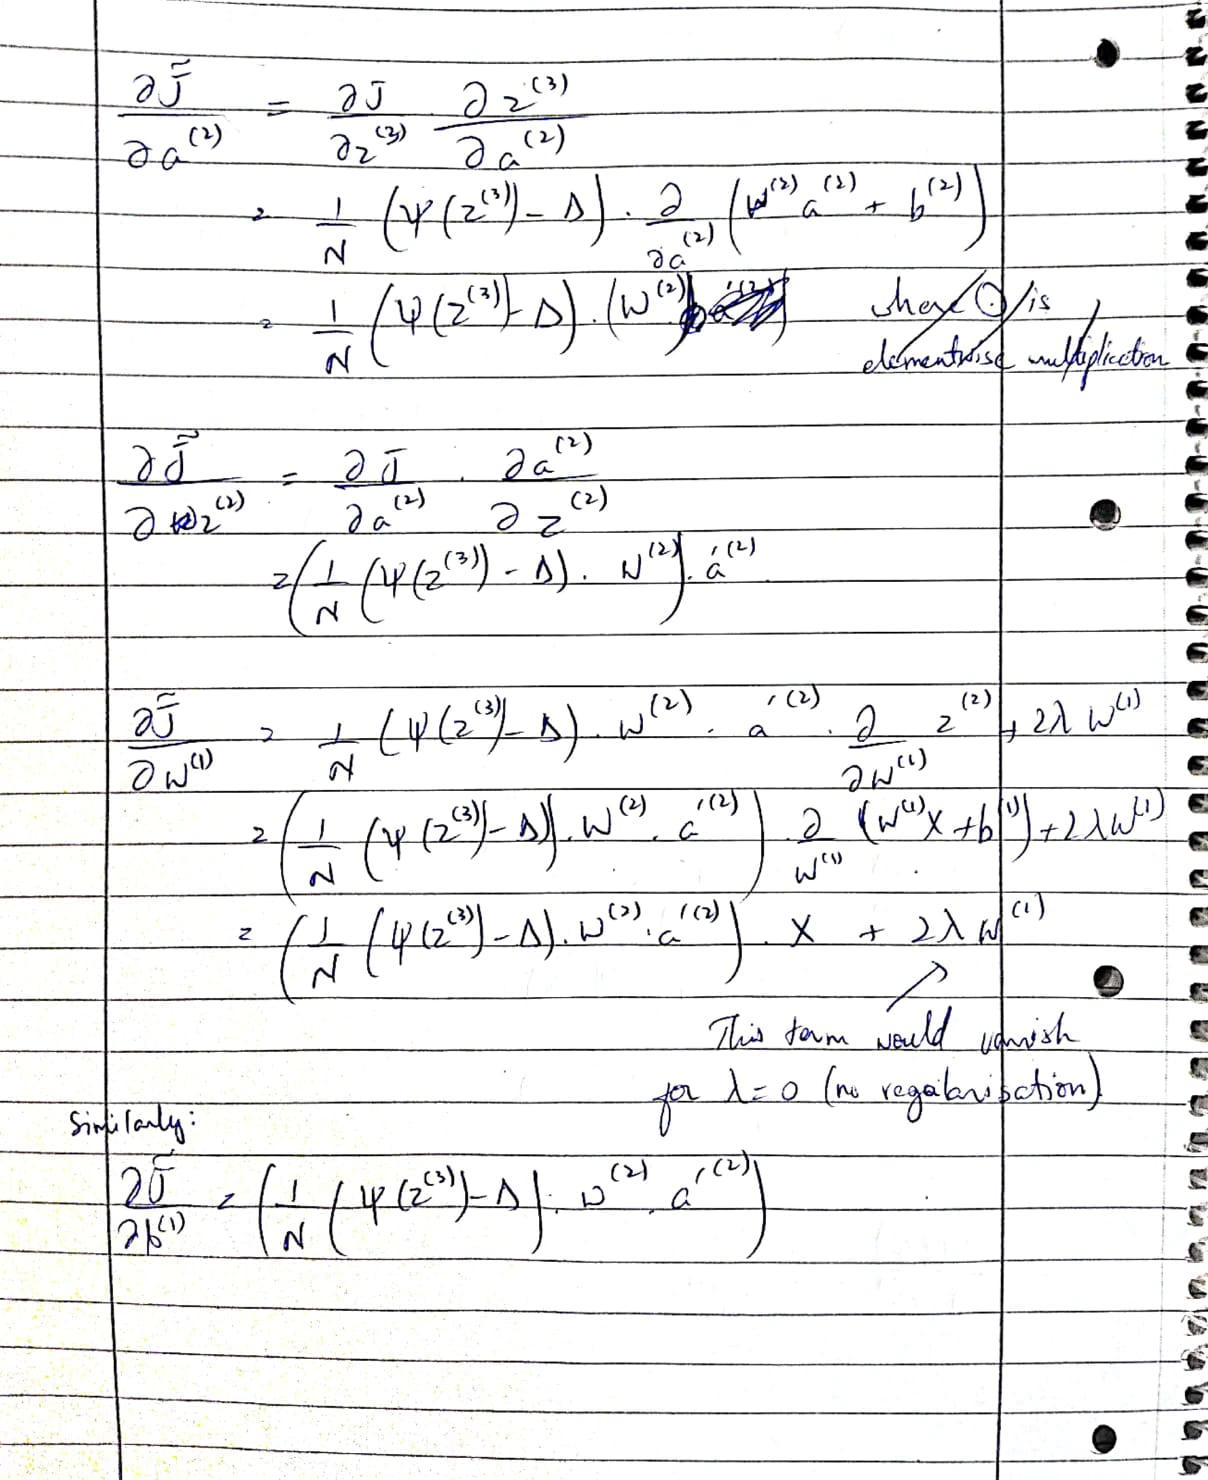 ∂J̃/∂a⁽²⁾ = ∂J/∂z⁽³⁾ ∂z⁽³⁾/∂a⁽²⁾
= 1/N (Ψ(z⁽³⁾) - Δ) . ∂/∂a⁽²⁾ (W⁽²⁾a⁽²⁾ + b⁽²⁾)
= 1/N (Ψ(z⁽³⁾) - Δ) . (W⁽²⁾) where ⊙ is
elementwise multiplication
∂J̃/∂z⁽²⁾ = ∂J/∂a⁽²⁾ . ∂a⁽²⁾/∂z⁽²⁾
= (1/N (Ψ(z⁽³⁾) - Δ) . W⁽²⁾) . a′⁽²⁾
∂J̃/∂W⁽¹⁾ = 1/N (Ψ(z⁽³⁾) - Δ) . W⁽²⁾ . a′⁽²⁾ . ∂/∂W⁽¹⁾ z⁽²⁾ + 2λ W⁽¹⁾
= (1/N (Ψ(z⁽³⁾) - Δ) . W⁽²⁾ . a′⁽²⁾) . ∂/W⁽¹⁾ (W⁽¹⁾X + b⁽¹⁾) + 2λW⁽¹⁾
= (1/N (Ψ(z⁽³⁾) - Δ) . W⁽²⁾ . a′⁽²⁾) . X + 2λ W⁽¹⁾
This term would vanish
for λ = 0 (no regularisation)
Similarly:
∂J̃/∂b⁽¹⁾ = (1/N (Ψ(z⁽³⁾) - Δ) . W⁽²⁾ . a′⁽²⁾)